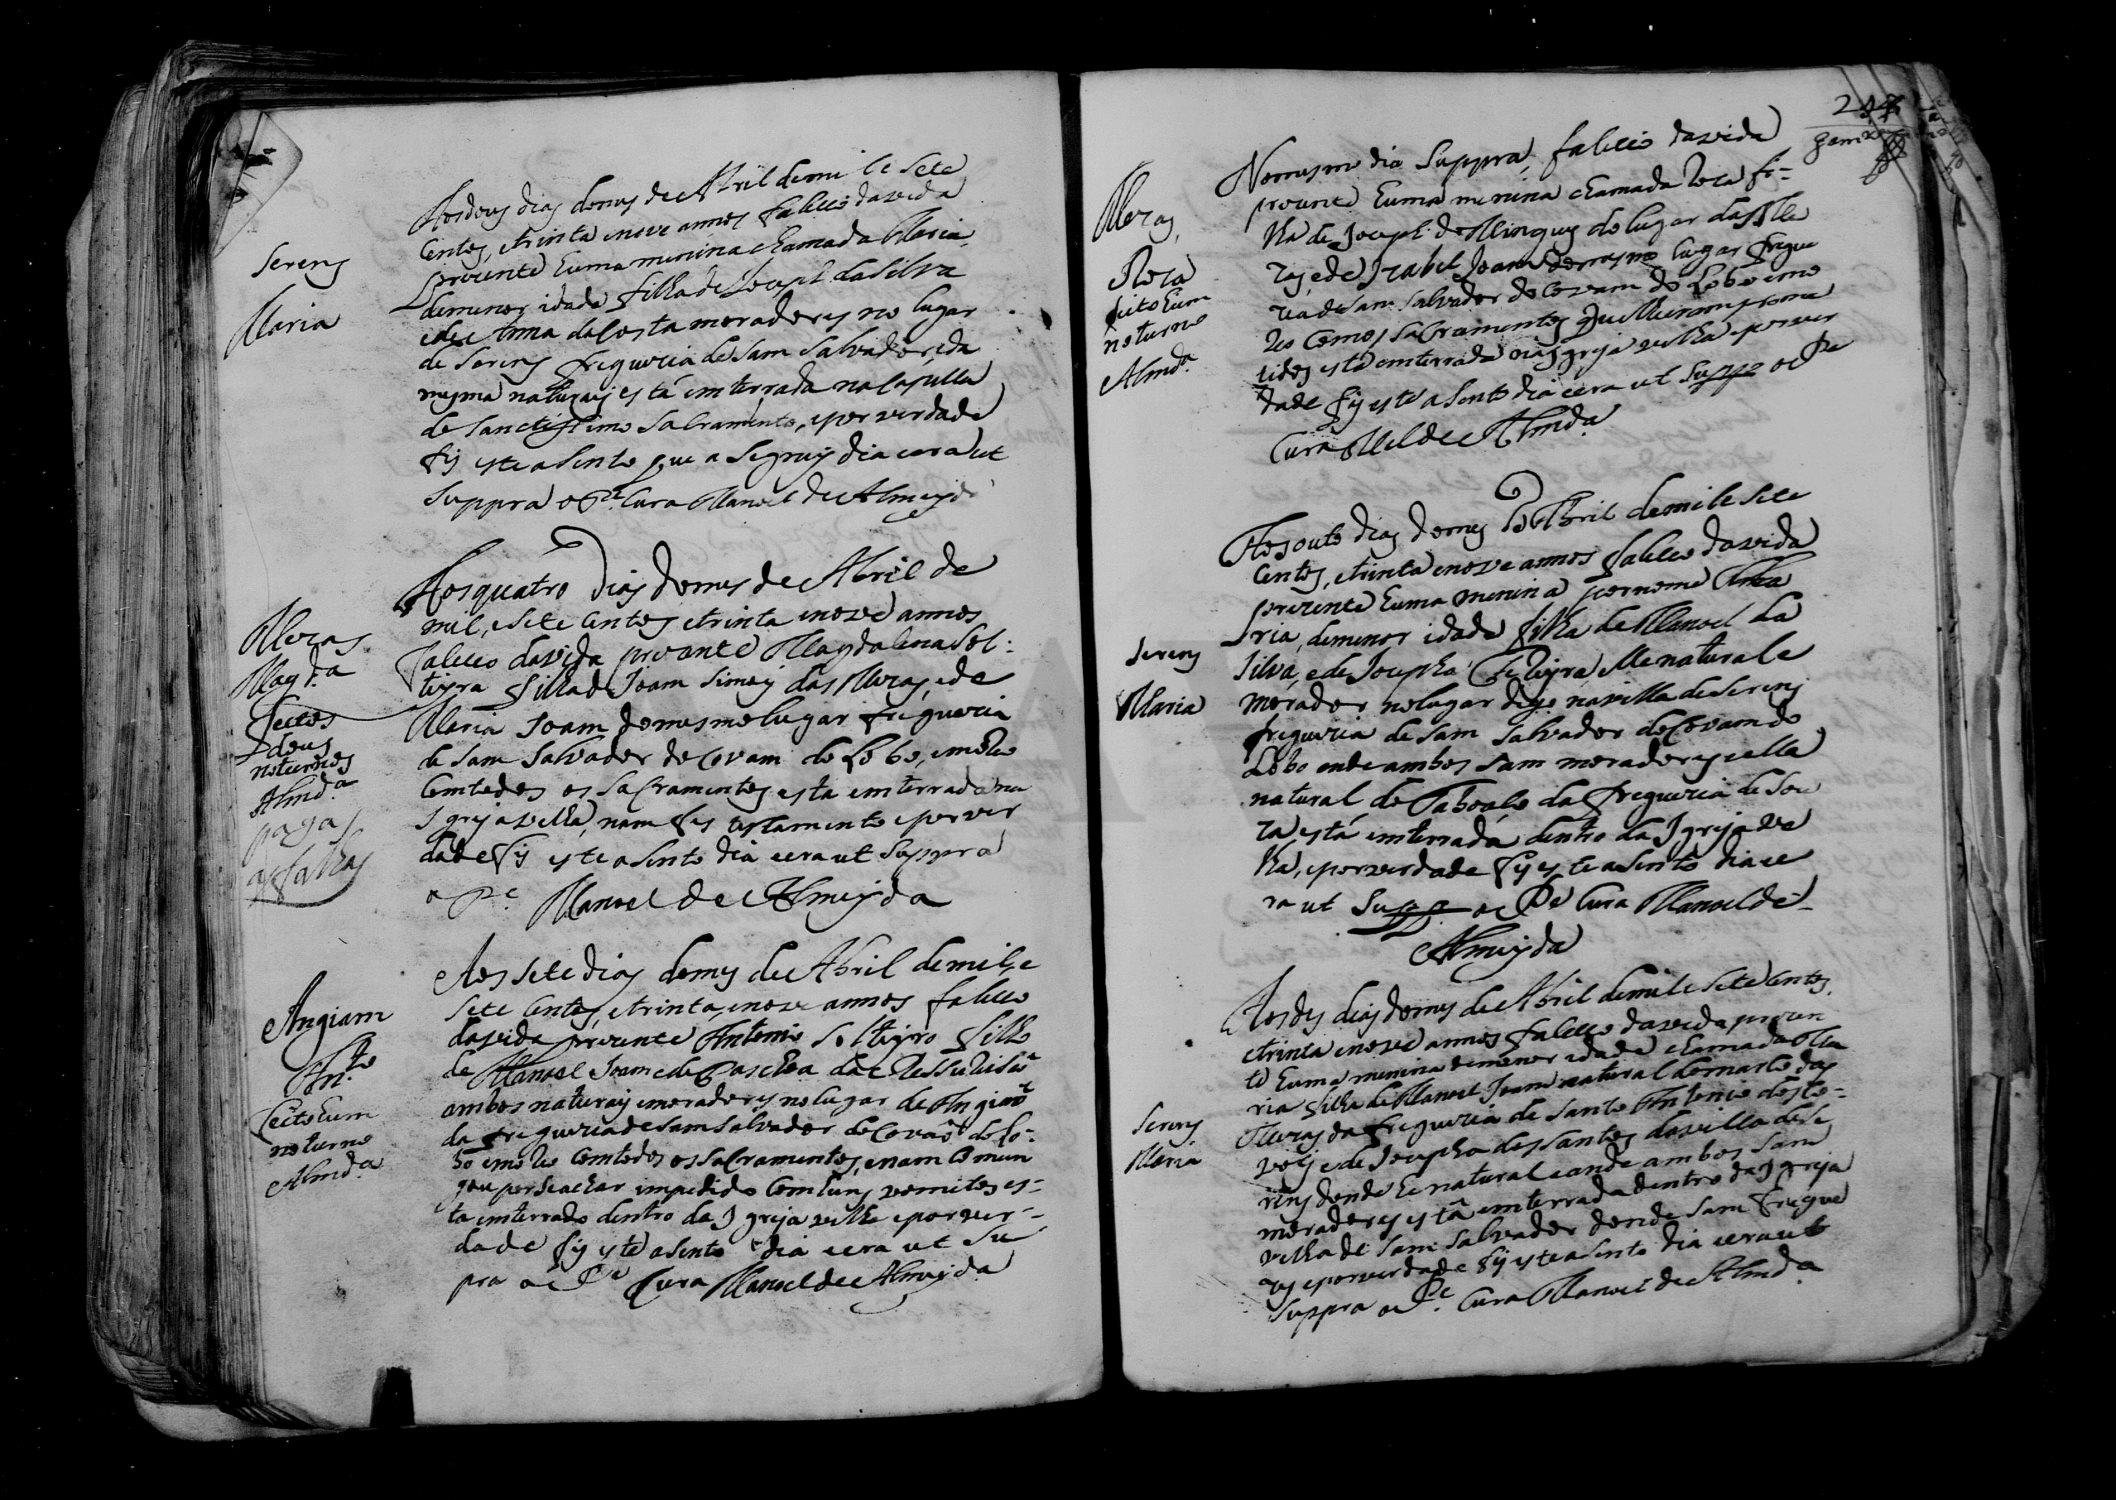 Serens
Maria
Aos dous dias do mes de Abril de mil e sete
centos, e trinta e nove annos faleceo da vida
prezente huma menina chamada Maria
de menor idade filha de Joseph da Silva
e de Anna da Costa moradores no lugar
de Serens freguezia de Sam Salvador, e da
mesma naturais está emterrada na Capella
do Sanctissimo Sacramento, e por verdade
fis este asento que asegney dia e era ut
Suppra o Pe. Cura Manoel de Almeyda
Meras
Magd.a
feitos
dous
noturnos
Almd.a
pagas
as falhas
Aos quatro dias do mes de Abril de
mil, e sete centos e trinta e nove annos
faleceo da vida prezente Magdalena Sol-
teyra filha de Joam Simois das Meras, e de
Maria Joam do mesmo lugar freguezia
de Sam Salvador de Covam do Lobo, e moreo
com todos os Sacramentos esta emterrada na
Igreja velha, nam fes testamento e por ver
dade fis este asento dia e era ut Suppra
o Pe Manoel de Almeyda
Angiam
Ant.o
feito hum
noturno
Almd.a
Aos sete dias do mes de Abril de mil, e
sete centos, e trinta, e nove annos faleceo
da vida prezente Antonio Solteyro filho
de Manoel Joam e de Paschoa da
ambos naturais e moradores no lugar de Angiam
da freguezia de Sam Salvador de Covão do Lo-
bo e moreo com todos os Sacramentos, e nam comun
gou por se achar impedido com huns vomitos es-
ta emterrado dentro da Igreja velha e por ver-
dade fis este asento dia e era ut Su
pra o Pe Cura Manoel de Almeyda
Meras
Roza
feito hum
noturno
Almd.a
No mesmo dia Suppra, faleceo da vida
prezente huma menina chamada Roza fi-
lha de Joseph Domingues do lugar das Me
ras, e de Izabel Joam do mesmo lugar fregue
zia de Sam Salvador de Covam do Lobo e mo
reo com os Sacramentos
está emterrada na Igreja velha e por ver
dade fis este asento dia e era ut Supp.a o Pe
Cura Mel de Almd.a
Serens
Maria
Aos outo dias do mes de Abril de mil e sete
centos, e trinta e nove annos faleceo da vida
prezente huma menina por nome Ma
ria, de menor idade filha de Manoel da
Silva, e de Josepha elle natural e
morador no lugar digo na villa de Serens
freguezia de Sam Salvador de Covam do
Lobo onde ambos sam moradores e ella
natural de da freguezia de Sou
za está emterrada dentro da Igreja ve
lha, e por verdade fis este asento dia e e
ra ut Supp.a o Pe Cura Manoel de
Almeyda
Serens
Maria
Aos des dias do mes de Abril de mil e sete centos,
e trinta e nove annos faleceo da vida prezen
te huma menina de menor idade chamada Ma
ria filha de Manoel Joam natural do das
Meras da freguezia de Santo Antonio
e de Josepha dos Santos da villa de Se
rens donde he natural e onde ambos sam
moradores está emterrada dentro da Igreja
velha de Sam Salvador donde sam fregue
zes e por verdade fis este asento dia e era ut
Suppra o Pe. Cura Manoel de Almd.a